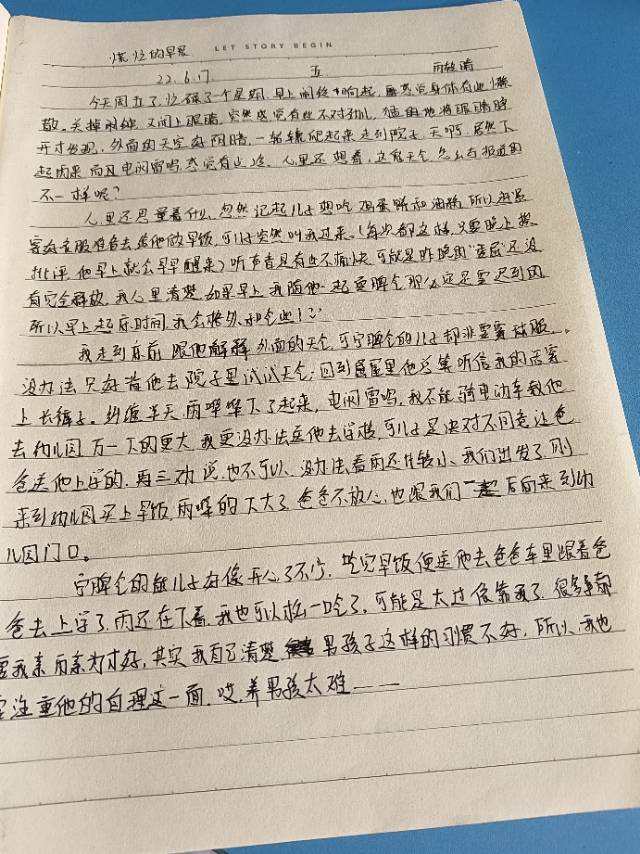 慌忙的早晨 LET STORY BEGIN
22.6.17 五 雨转晴
今天周五了,忙碌了一个星期,早上闹铃响起,感觉身体有些懒
散。关掉闹铃又闭上眼睛,突然感觉有些不对劲儿,猛的地将眼睛睁
开才发现,外面的天空好阴暗,一轱辘爬起来走到院子,天啊,居然下
起雨来而且电闪雷鸣感觉有些冷,心里还想着,这鬼天气怎么与报道的
不一样呢?
心里还思量着什么,忽然记起儿子想吃鸡蛋饼和油条,所以
穿好衣服准备去给他做早饭,可儿子突然叫我过来,(每次都这样,只要晚上挨
批评,他早上就会早早醒来)听声音是有些不愉快,可能是昨晚的委屈还没
有完全释放,我心里清楚,如果早上我随他一起耍脾气那么定是要迟到的
所以早上起床时间,我会格外和气些!
我走到床前,跟他解释外面的天气,可宁脾气的儿子却非要穿短服。
没办法只好带他去院子里试试天气;回到屋里他总算听信我的话穿
上长裤子。纠缠半天雨哗哗下了起来,电闪雷鸣,我不能骑电动车载他
去幼儿园,万一下的更大我更没办法送他去学校,可儿子是决对不同意让爸
爸送他上学的,再三劝说,也不可以,没办法看雨还比较小,我们出发了,刚
来到幼儿园买上早饭,雨哗的下大了,爸爸不放心,也跟我们一起后面来到幼
儿园门口。
宁脾气的儿子好像开心了不少,吃完早饭便送他去爸爸车里跟着爸
爸去上学了,雨还在下着,我也可以松一口气了,可能是太过依靠我了,很多事都
要我亲历亲为才好,其实我自己清楚,男孩子这样的习惯不好,所以,我也
注重他的自理这一面,哎,养男孩太难——